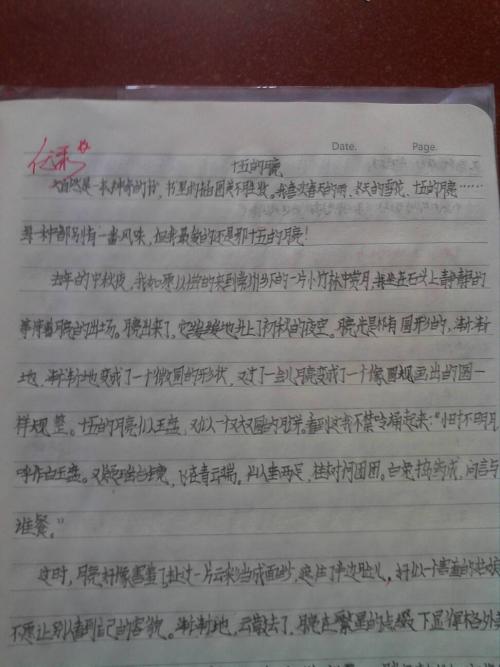 优秀☆
Date. Page.
十五的月亮
大自然是一本神奇的书,书里的插图美不胜数。我喜欢春天的雨、冬天的雪花、十五的月亮……
每一种都别有一番风味,但我最爱的还是那十五的月亮!
去年的中秋夜,我如愿以偿的来到常州乡下的一片小竹林中赏月。我坐在石头上静静的
等待着月亮的出场。月亮出来了,它缓缓地升上了的夜空。月亮先是有圆形的,渐渐
地,渐渐地变成了一个微圆的形状,又过了一会儿月亮变成了一个像圆规画出的圆一
样规整。十五的月亮似玉盘,又似一块圆的月饼。看到这我不禁吟诵起来:"小时不识月,
呼作白玉盘。又疑瑶台镜,飞在青云端。仙人垂两足,桂树何团团。白兔捣药成,问言与
谁餐。"
这时,月亮好像害羞了,扯过一片云彩当成面纱,遮住了半边脸儿,好似一个害羞的姑娘
不愿让别人看到自己的容貌。渐渐地,云散去了,月亮在繁星的点缀下显得格外